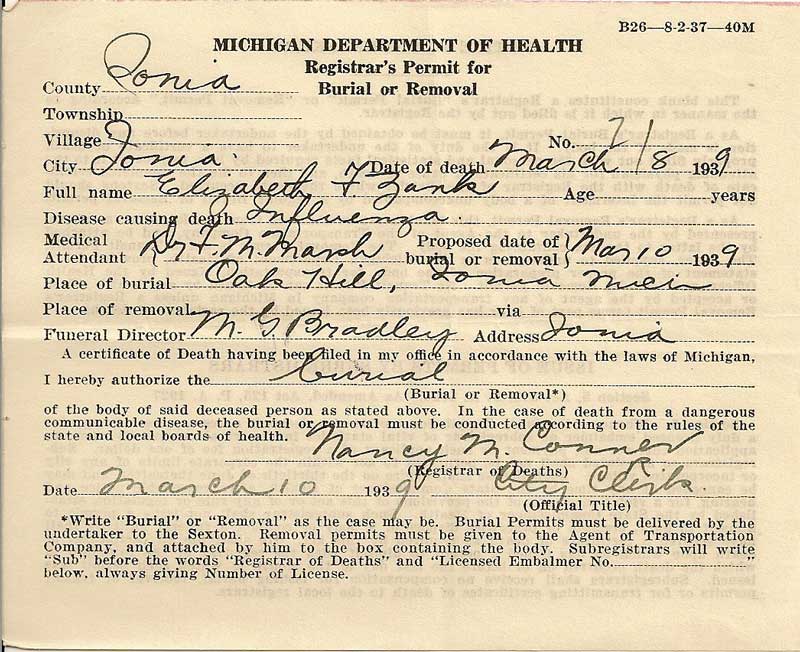 B26—8-2-37—40M
MICHIGAN DEPARTMENT OF HEALTH
Registrar's Permit for
County Ionia Burial or Removal
Township
Village No. 71
City Ionia. Date of death March 8 1939
Full name Elizabeth F Zank Age years
Disease causing death Influenza.
Medical Attendant Dr F. M. Marsh Proposed date of burial or removal Mar 10 1939
Place of burial Oak Hill, Ionia Mich
Place of removal via
Funeral Director M. G. Bradley Address Ionia
A certificate of Death having been filed in my office in accordance with the laws of Michigan,
I hereby authorize the burial
(Burial or Removal*)
of the body of said deceased person as stated above. In the case of death from a dangerous
communicable disease, the burial or removal must be conducted according to the rules of the
state and local boards of health.
Nancy M. Conner
(Registrar of Deaths)
Date March 10 1939 City Clerk.
(Official Title)
*Write "Burial" or "Removal" as the case may be. Burial Permits must be delivered by the
undertaker to the Sexton. Removal permits must be given to the Agent of Transportation
Company, and attached by him to the box containing the body. Subregistrars will write
"Sub" before the words "Registrar of Deaths" and "Licensed Embalmer No. "
below, always giving Number of License.